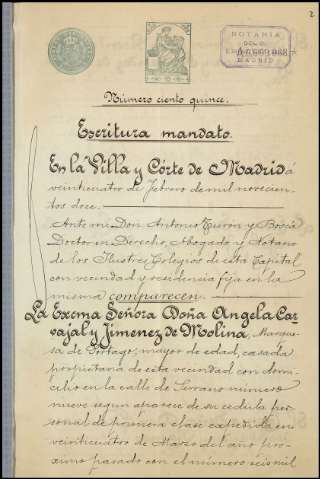 2
NOTARIA
DEL DR.
A
MADRID
Número ciento quince.
Escritura mandato.
En la Villa y Córte de Madrid á
veinticuatro de Febrero de mil novecien-
tos doce.
Ante mi Don Antonio Turon y Boscá
Doctor en Derecho, Abogado y Notario
de los Ilustres Colegios de esta Capital
con vecindad y residencia fija en la
misma comparecen
La Excma Señora Doña Angela Car-
vajal y Jimenez de Molina, Marque-
sa de Portago, mayor de edad, casada
propietaria de esta vecindad con domi-
cilio en la calle de Serrano número
nueve segun aparece de su cedula per-
sonal de primera clase expedida en
veinticuatro de Marzo del año pro-
ximo pasado con el número seis mil